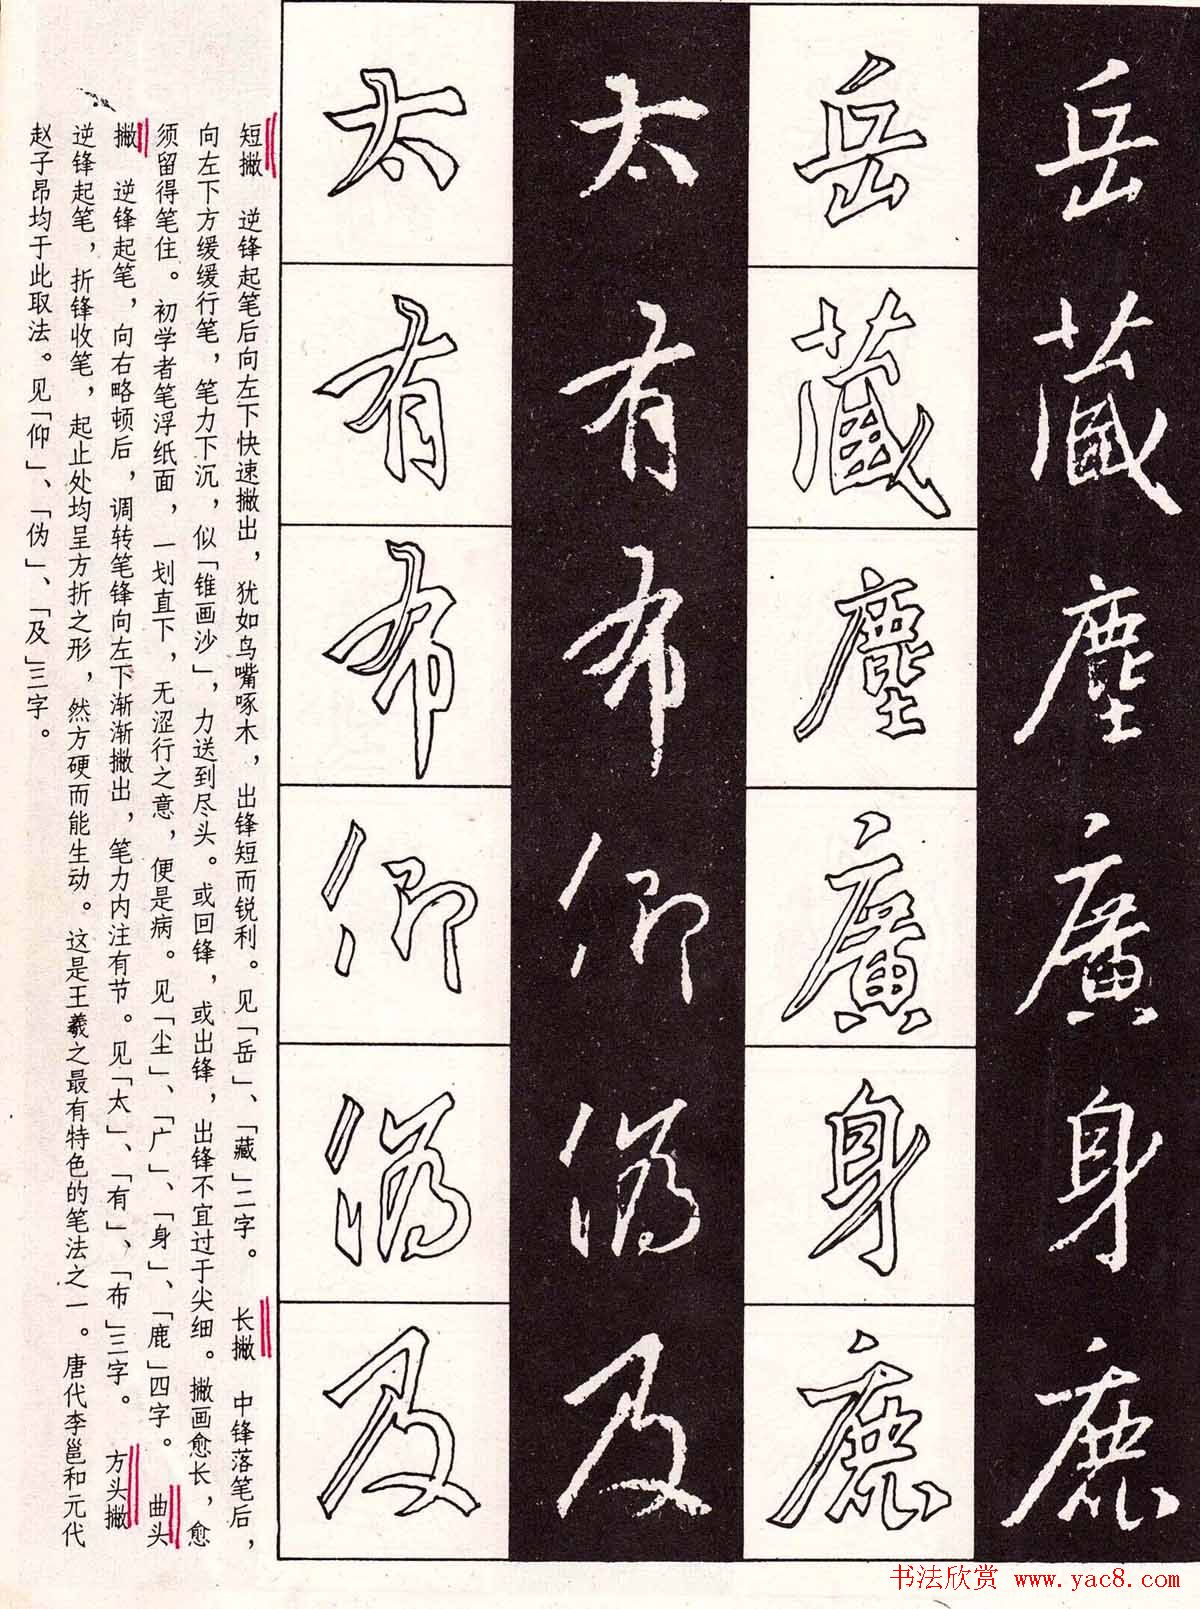 岳藏塵廣身鹿
岳藏塵廣身鹿
太有布仰伪及
太有布仰伪及
短撇　逆锋起笔后向左下快速撇出，犹如鸟嘴啄木，出锋短而锐利。见「岳」、「藏」二字。　长撇　中锋落笔后，
向左下方缓缓行笔，笔力下沉，似「锥画沙」，力送到尽头。或回锋，或出锋，出锋不宜过于尖细。撇画愈长，愈
须留得笔住。初学者笔浮纸面，一划直下，无涩行之意，便是病。见「尘」、「广」、「身」、「鹿」四字。　曲头
撇　逆锋起笔，向右略顿后，调转笔锋向左下渐渐撇出，笔力内注有节。见「太」、「有」、「布」三字。　方头撇
逆锋起笔，折锋收笔，起止处均呈方折之形，然方硬而能生动。这是王羲之最有特色的笔法之一。唐代李邕和元代
赵子昂均于此取法。见「仰」、「伪」、「及」三字。
书法欣赏 www.yac8.com